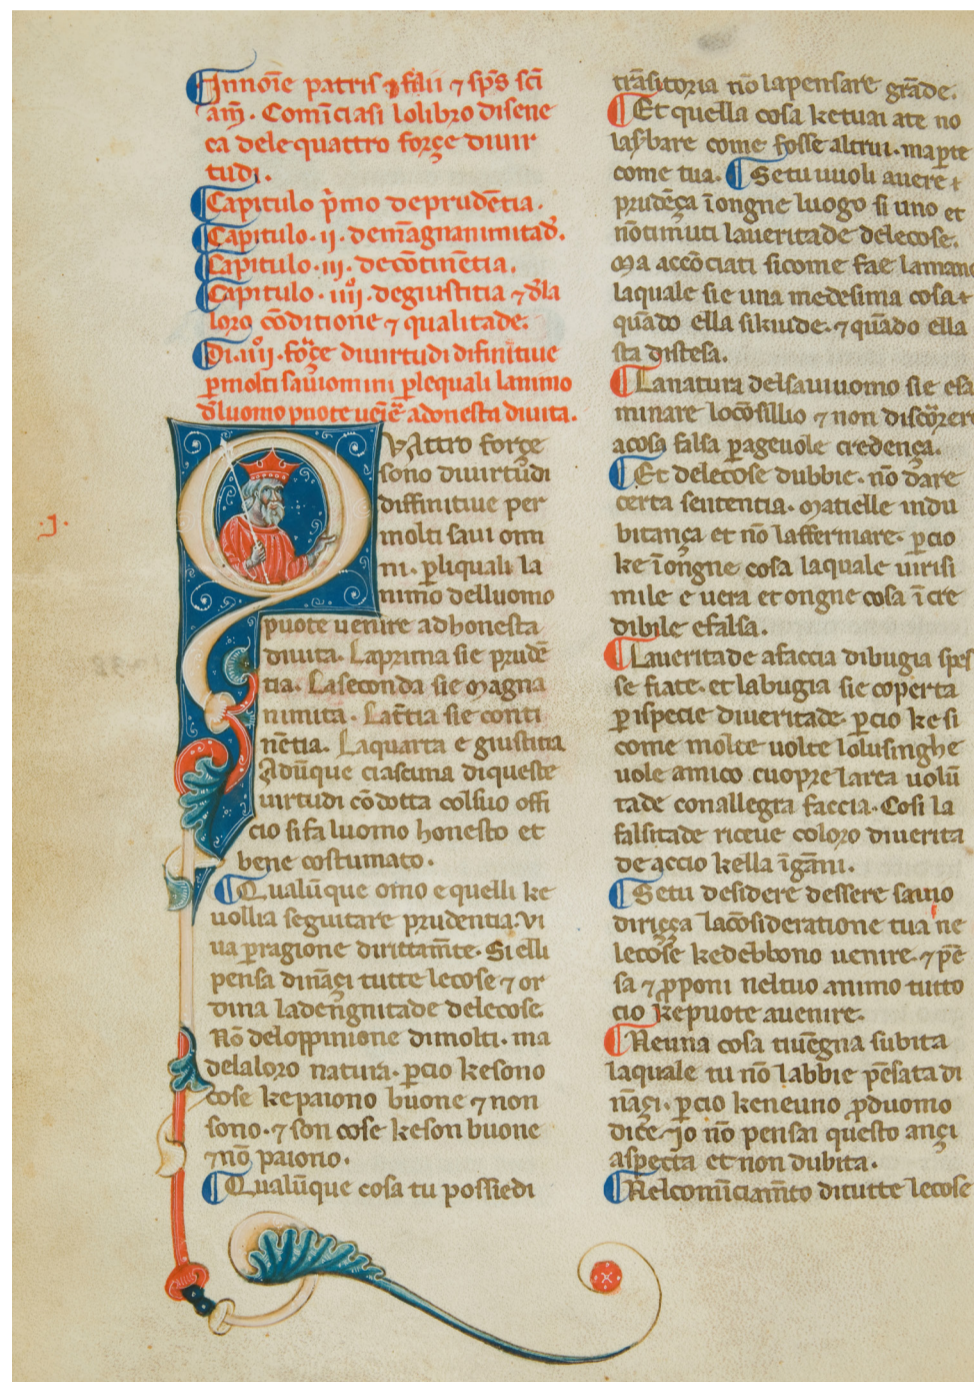 Innoīe patris ⁊ filii ⁊ sp̄s sc̄i
am̄. Comīciasi lolibro disene
ca dele quattro forçe diuir
tudi.
Capitulo p̄mo deprudētia.
Capitulo .ii. dem̄agnanimitad̄.
Capitulo .iii. decōtinētia.
Capitulo .iiii. degiustitia ⁊ d̄la
loro cōditione ⁊ qualitade.
Di .iiii. forçe diuirtudi difinitiue
ꝑmolti sauiomini ꝑlequali lanimo
d̄luomo puote uēir̄e adonesta diuita.
.I.
QVAttro forçe
sono diuirtudi
diffinitiue per
molti saui omi
ni. ꝑliquali la
nimo delluomo
puote uenire adhonesta
diuita. Laprima sie prudē
tia. Laseconda sie magna
nimita. Lat̄tia sie conti
nētia. Laquarta e giustitia
Adūque ciascuna diqueste
uirtudi cōdotta colsuo offi
cio sifa luomo honesto et
bene costumato.
Qualūque omo e quelli ke
uollia seguitare prudentia. Vi
ua ꝑragione dirittam̄te. Si elli
pensa dināçi tutte lecose ⁊ or
dina ladengnitade delecose.
Nō deloppinione dimolti. ma
delaloro natura. ꝑcio kesono
cose kepaiono buone ⁊ non
sono. ⁊ son cose keson buone
⁊ nō paiono.
Qualūque cosa tu possiedi
trāsitoria nō lapensare grāde.
Et quella cosa ketuai ate no
laserbare come fosse altrui. ma ꝑte
come tua. Setu uuoli auere ⁊
prudēça īongne luogo si uno et
nōtimuti laueritade delecose.
Ma accōciati sicome fae lamano
laquale sie una medesima cosa ⁊
quādo ella sikiude. ⁊ quādo ella
sta distesa.
Lanatura delsauiuomo sie esa
minare locōsillio ⁊ non discorere
acosa falsa ꝑageuole credença.
Et delecose dubbie. nō dare
certa sententia. Matielle indu
bitança et nō laffermare. ꝑcio
ke īongne cosa laquale uirisi
mile e uera et ongne cosa īcre
dibile e falsa.
Laueritade afaccia dibugia spes
se fiate. et labugia sie coperta
ꝑispecie diueritade. ꝑcio kesi
come molte uolte lolusinghe
uole amico cuopre larea uolū
tade conallegra faccia. Cosi la
falsitade riceue coloro diuerita
de accio kella īgāni.
Setu desidere dessere sauio
diriçça lacōsideratione tua ne
lecose kedebbono uenire. ⁊ pē
sa ⁊ ꝓponi neltuo animo tutto
cio kepuote auenire.
Neuna cosa tiuēgna subita
laquale tu nō labbie pēsata di
nāçi. ꝑcio keneuno ꝓduomo
dice io nō pensai questo ançi
aspecta et non dubita.
Nelcomīciam̄to ditutte lecose